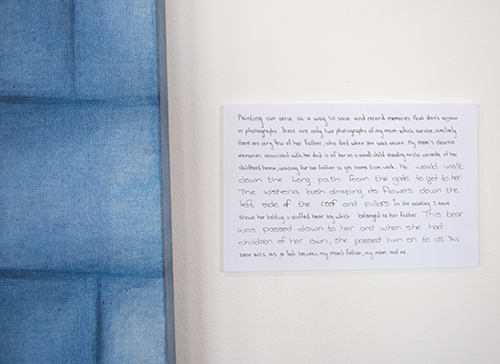 Painting can serve as a way to save and record memories that don't appear
in photographs. There are only two photographs of my mom which survive, similarly
there are very few of her father, who died when she was seven. My mom's clearest
memories associated with her dad is of her as a small child standing on the veranda of her
childhood home, waiting for her father to get home from work. He would walk
down the long path from the gate to get to her.
The wisteria bush draping its flowers down the
left side of the roof and pillars. In the painting I have
shown her holding a stuffed bear toy which belonged to her father. This bear
was passed down to her and when she had
children of her own, she passed him on to us. This
bear acts as a link between my mom's father, my mom and me.